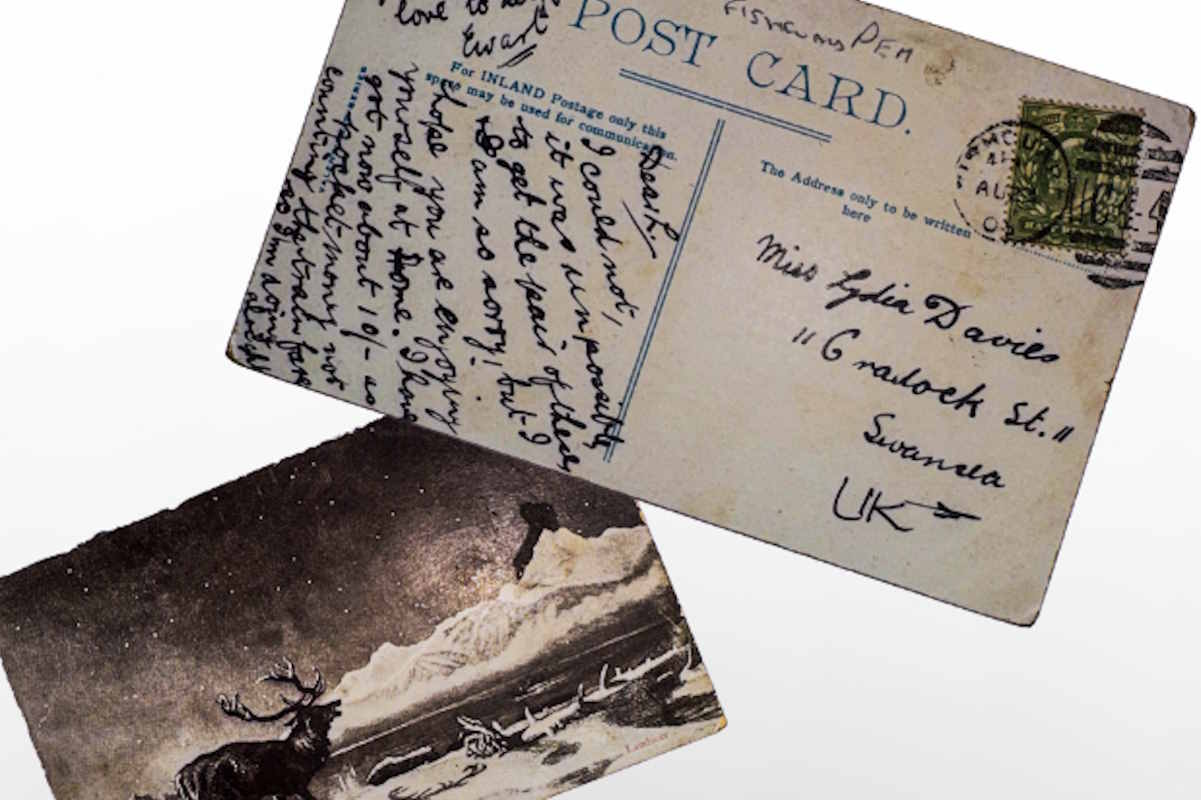 love to
Ewart
POST CARD.
FISHGUARD PEM
For INLAND Postage only this
space may be used for communication.
The Address only to be written
here
Dear L.
I could not,
it was impossible
to get the pair of these
I am so sorry! but I
hope you are enjoying
yourself at home. I have
got now about 10/- as
pocket money not
counting the train fare
so I'm doing
alright
FISHGUARD
AU
Miss Lydia Davies
"11 Cradock St."
Swansea
UK
Landseer